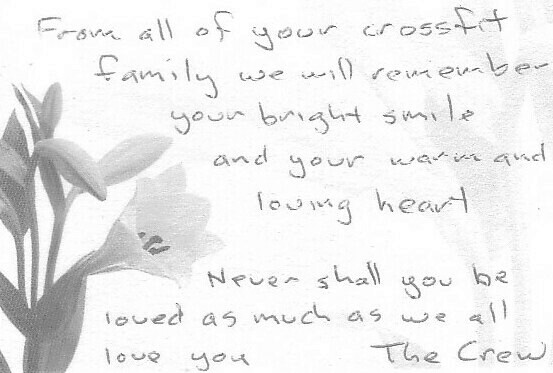 From all of your crossfit
family we will remember
your bright smile
and your warm and
loving heart
Never shall you be
loved as much as we all
love you The Crew